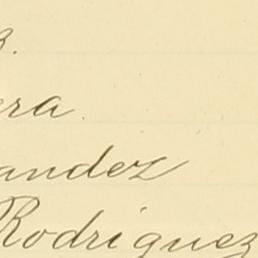 era.
andez
Rodriguez